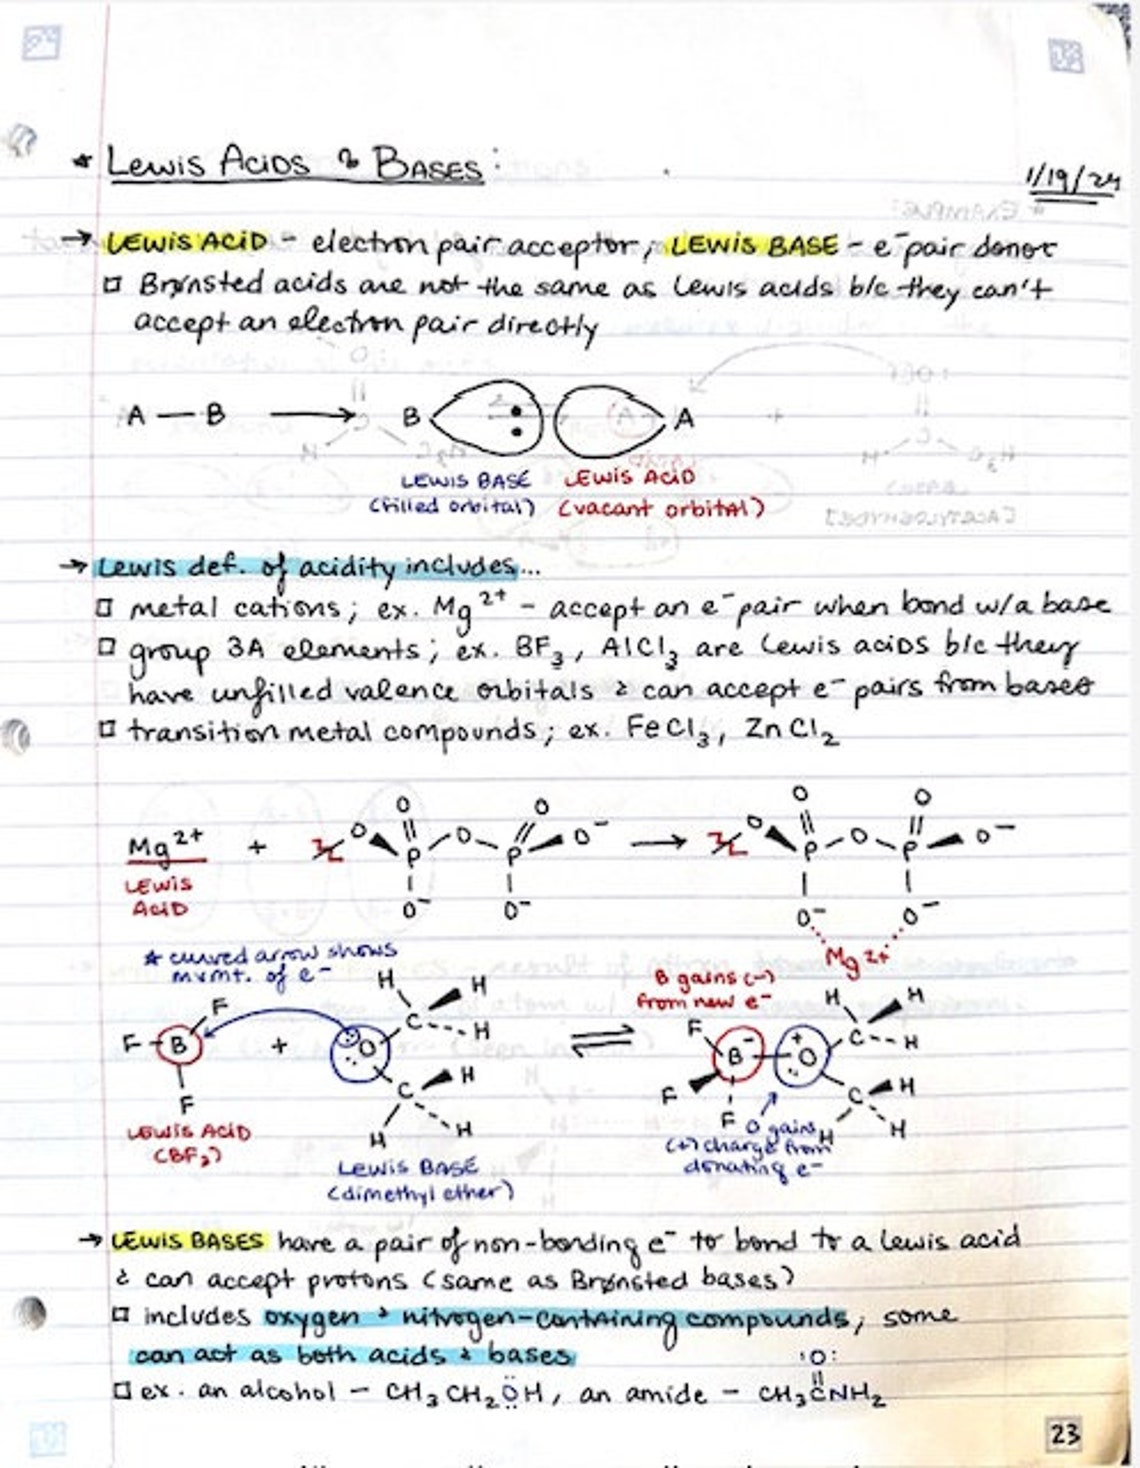 * Lewis Acids & Bases:
1/19/24
→ LEWIS ACID - electron pair acceptor, LEWIS BASE - e⁻ pair donor
□ Brønsted acids are not the same as Lewis acids b/c they can't
accept an electron pair directly
A — B → B : A
LEWIS BASE LEWIS ACID
(filled orbital) (vacant orbital)
→ Lewis def. of acidity includes...
□ metal cations; ex. Mg²⁺ - accept an e⁻ pair when bond w/a base
□ group 3A elements; ex. BF₃, AlCl₃ are Lewis acids b/c they
have unfilled valence orbitals & can accept e⁻ pairs from bases
□ transition metal compounds; ex. FeCl₃, ZnCl₂
O O O O
Mg²⁺ + O P O P O⁻ → O P O P O⁻
LEWIS
ACID
O⁻ O⁻ O⁻ O⁻
Mg²⁺
* curved arrow shows
mvmt. of e⁻
B gains (-)
from new e⁻
F H H F H H
F B + :O C H ⇌ B⁻ O⁺ C H
F C H F C H
H H F H H
LEWIS ACID
(BF₃)
LEWIS BASE
(dimethyl ether)
O gains
(+) charge from
donating e⁻
→ LEWIS BASES have a pair of non-bonding e⁻ to bond to a lewis acid
& can accept protons (same as Brønsted bases)
□ includes oxygen & nitrogen-containing compounds, some
can act as both acids & bases
:O:
□ ex. an alcohol - CH₃CH₂ÖH, an amide - CH₃CNH₂
23